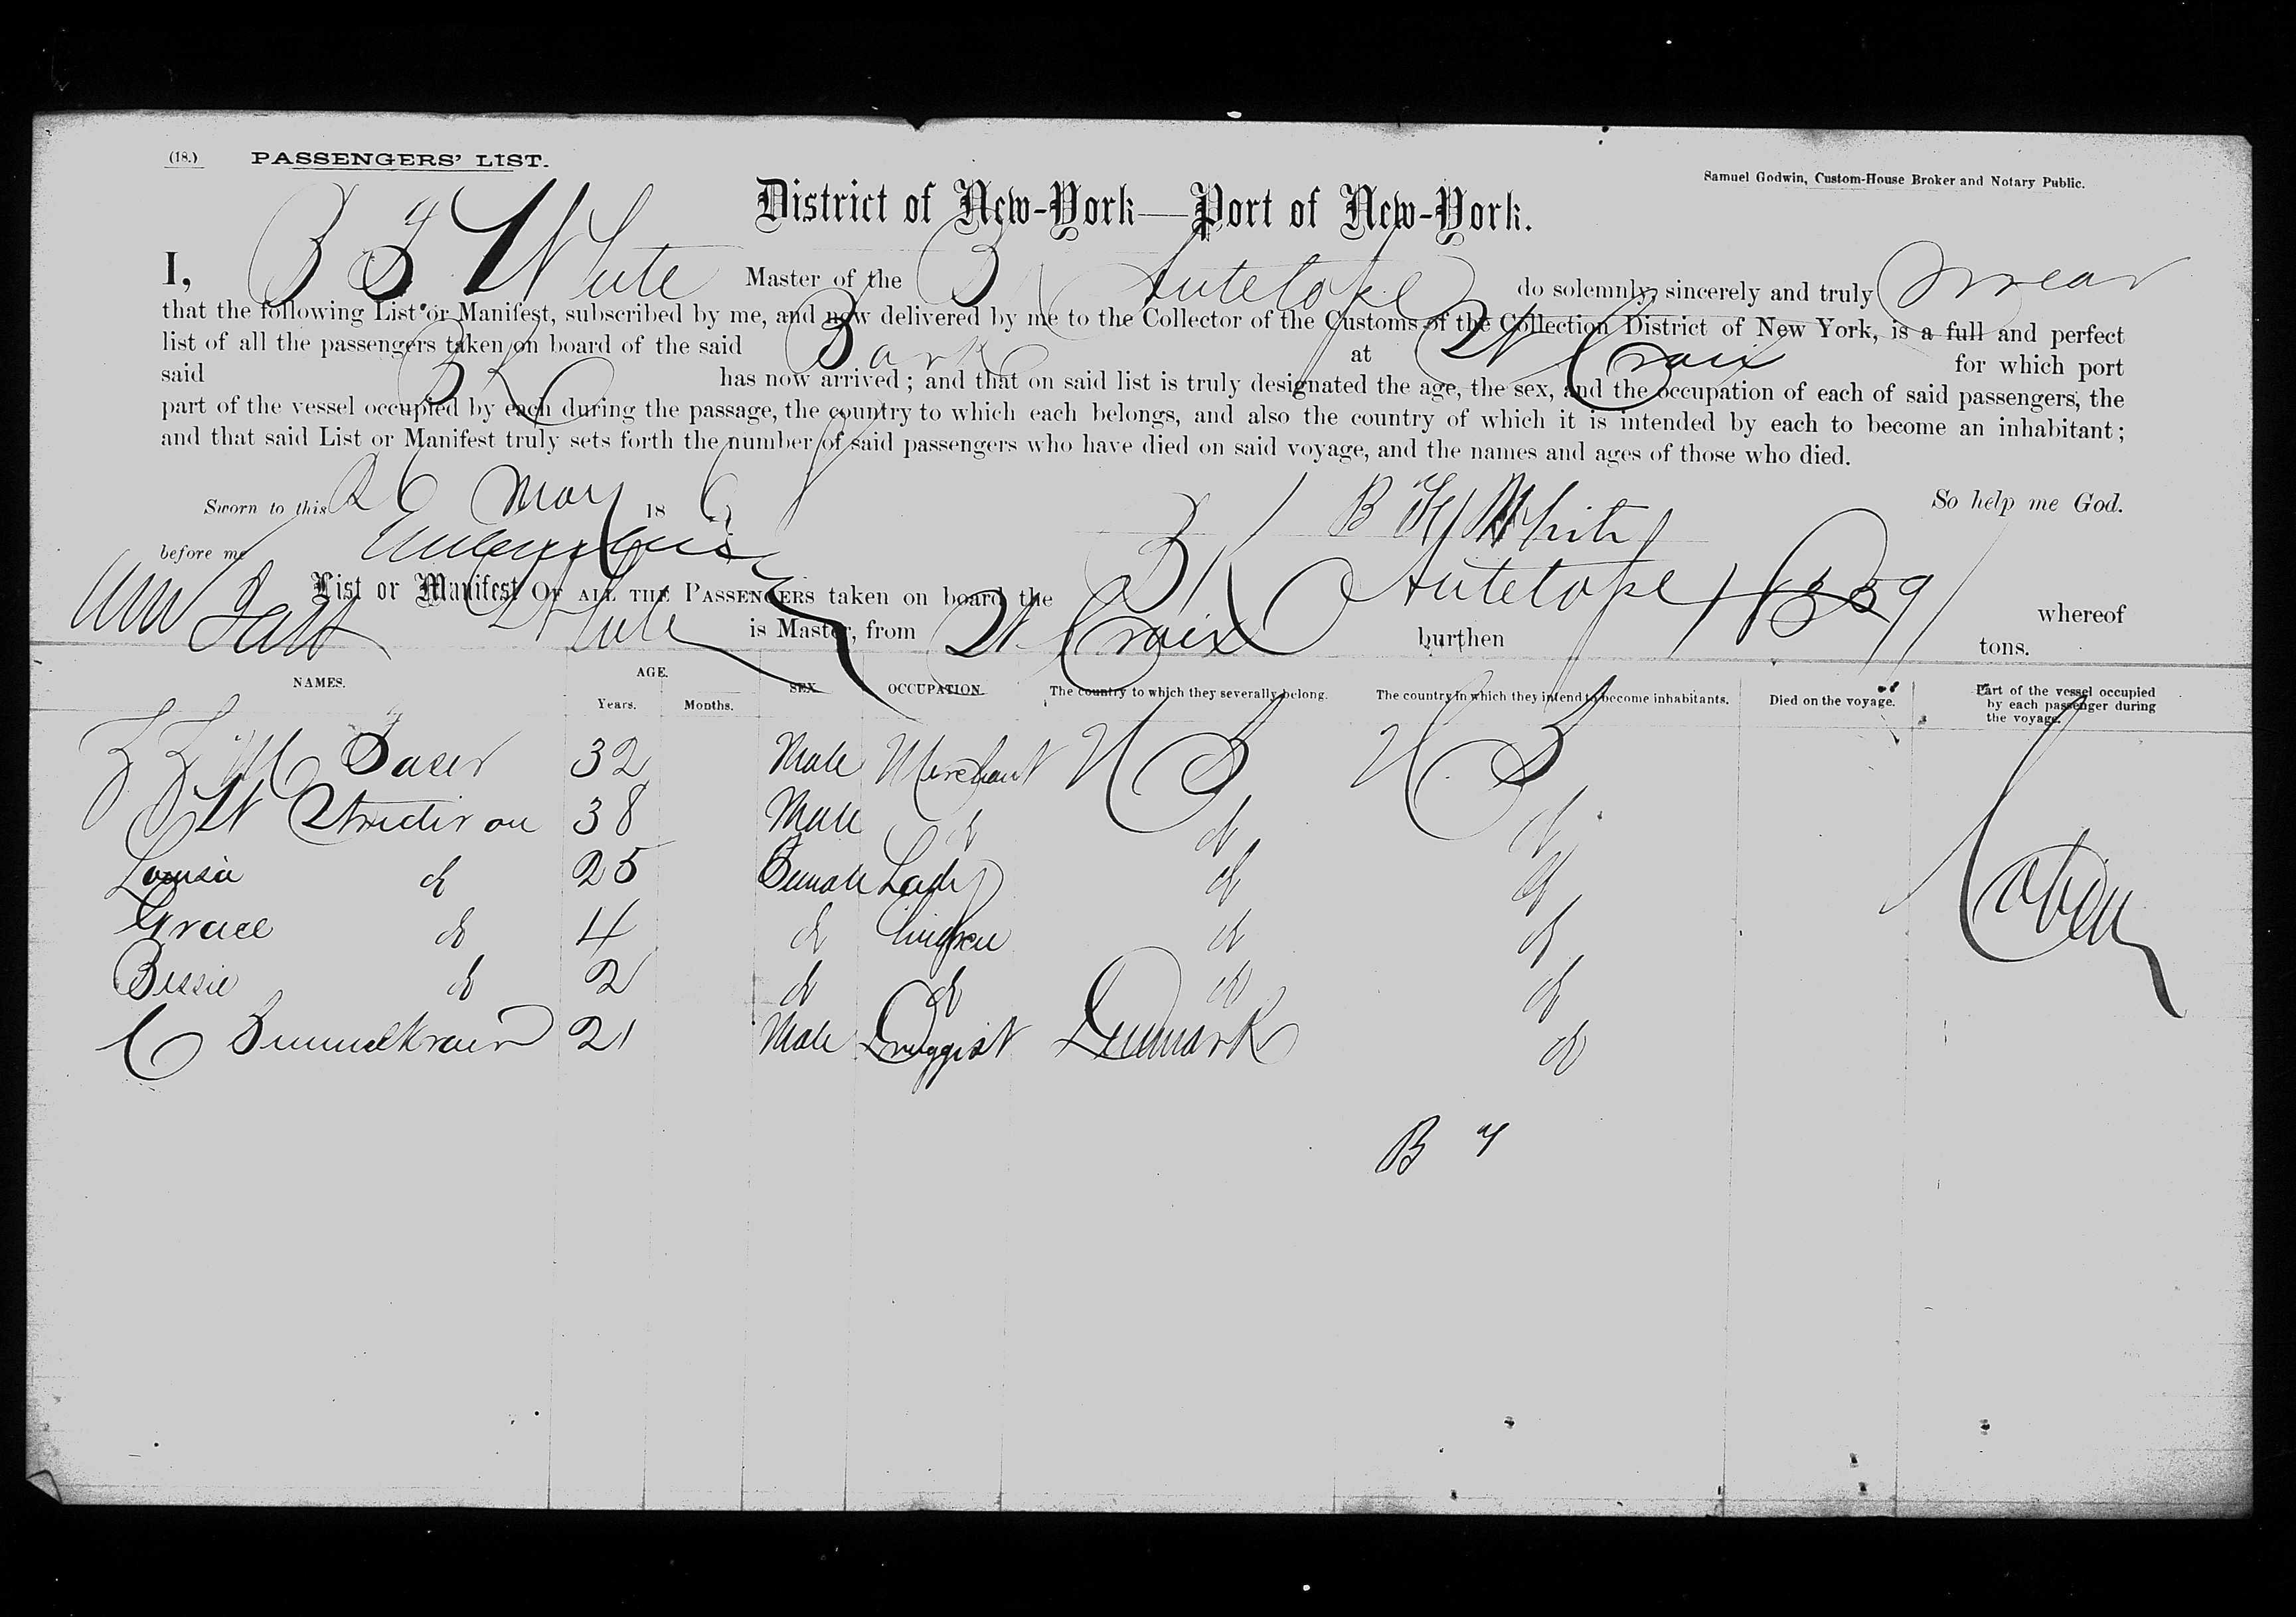 (18.) PASSENGERS' LIST.
Samuel Godwin, Custom-House Broker and Notary Public.
District of New-York—Port of New-York.
I, B F White Master of the Bk Antelope do solemnly, sincerely and truly swear
that the following List or Manifest, subscribed by me, and now delivered by me to the Collector of the Customs of the Collection District of New York, is a full and perfect
list of all the passengers taken on board of the said Bark at St Croix for which port
said Bk has now arrived; and that on said list is truly designated the age, the sex, and the occupation of each of said passengers, the
part of the vessel occupied by each during the passage, the country to which each belongs, and also the country of which it is intended by each to become an inhabitant;
and that said List or Manifest truly sets forth the number of said passengers who have died on said voyage, and the names and ages of those who died.
Sworn to this 26 May 186 B F White So help me God.
before me
List or Manifest OF ALL THE PASSENGERS taken on board the Bk Antelope whereof
White is Master, from St Croix burthen 359 tons.
NAMES. AGE. Years. Months. SEX OCCUPATION. The country to which they severally belong. The country in which they intend to become inhabitants. Died on the voyage. Part of the vessel occupied by each passenger during the voyage.
32 Male Merchant U S U. S
38 Male do do do
Louisa do 25 Female Lady do do
Grace do 4 do Children do do Cabin
Bessie do 2 do do do do
C 21 Male Druggist Denmark do